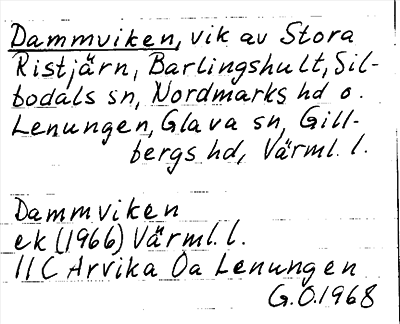 Dammviken, vik av Stora
Ristjärn, Barlingshult, Sil-
bodals sn, Nordmarks hd o.
Lenungen, Glava sn, Gill-
bergs hd, Värml. l.
Dammviken
ek (1966) Värml. l.
11 C Arvika 0a Lenungen
G.O. 1968